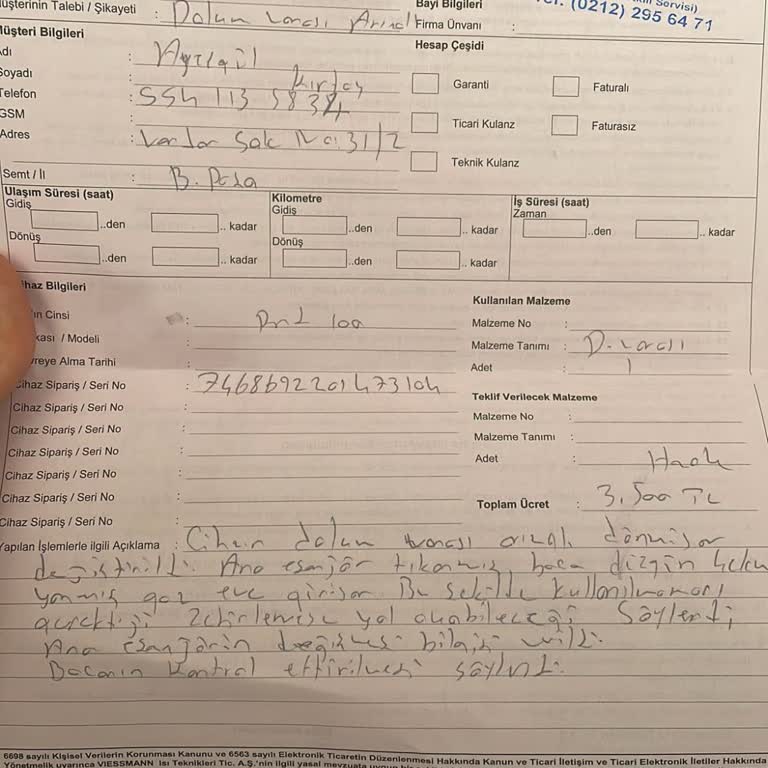 Müşterinin Talebi / Şikayeti : Dolum vanası Arızalı
Bayi Bilgileri
Servisi)
(0212) 295 64 71
Firma Ünvanı :
Müşteri Bilgileri
Hesap Çeşidi
Adı : Aysegül
Soyadı :
Garanti Faturalı
Telefon : 554 113 5834
GSM :
Ticari Kulanz Faturasız
Adres : Sok No: 31/2
Teknik Kulanz
Semt / İl : B. Paşa
Ulaşım Süresi (saat) Kilometre İş Süresi (saat)
Gidiş Gidiş Zaman
..den .. kadar ..den .. kadar ..den .. kadar
Dönüş Dönüş
..den .. kadar ..den .. kadar
Cihaz Bilgileri
Kullanılan Malzeme
Cinsi : 100
Malzeme No :
/ Modeli :
Malzeme Tanımı : D. vanası
Devreye Alma Tarihi :
Adet : 1
Cihaz Sipariş / Seri No : 7468692201473104
Teklif Verilecek Malzeme
Cihaz Sipariş / Seri No :
Malzeme No :
Cihaz Sipariş / Seri No :
Malzeme Tanımı :
Cihaz Sipariş / Seri No :
Adet :
Cihaz Sipariş / Seri No :
Cihaz Sipariş / Seri No :
Toplam Ücret : 3.500 TL
Cihaz Sipariş / Seri No :
Yapılan İşlemlerle ilgili Açıklama : Cihazın dolum vanası arızalı dönmüyor
değiştirildi. Ana eşanjör tıkanmış, baca düzgün
yanmış gaz eve giriyor. Bu şekilde kullanılmaması
gerektiği zehirlenmeye yol açabileceği söylendi
Ana eşanjörün değişmesi bilgisi verildi.
Bacanın kontrol ettirilmesi söylendi.
6698 sayılı Kişisel Verilerin Korunması Kanunu ve 6563 sayılı Elektronik Ticaretin Düzenlenmesi Hakkında Kanun ve Ticari İletişim ve Ticari Elektronik İletiler Hakkında
Yönetmelik uyarınca VIESSMANN Isı Teknikleri Tic. A.Ş.'nin ilgili yasal mevzuata